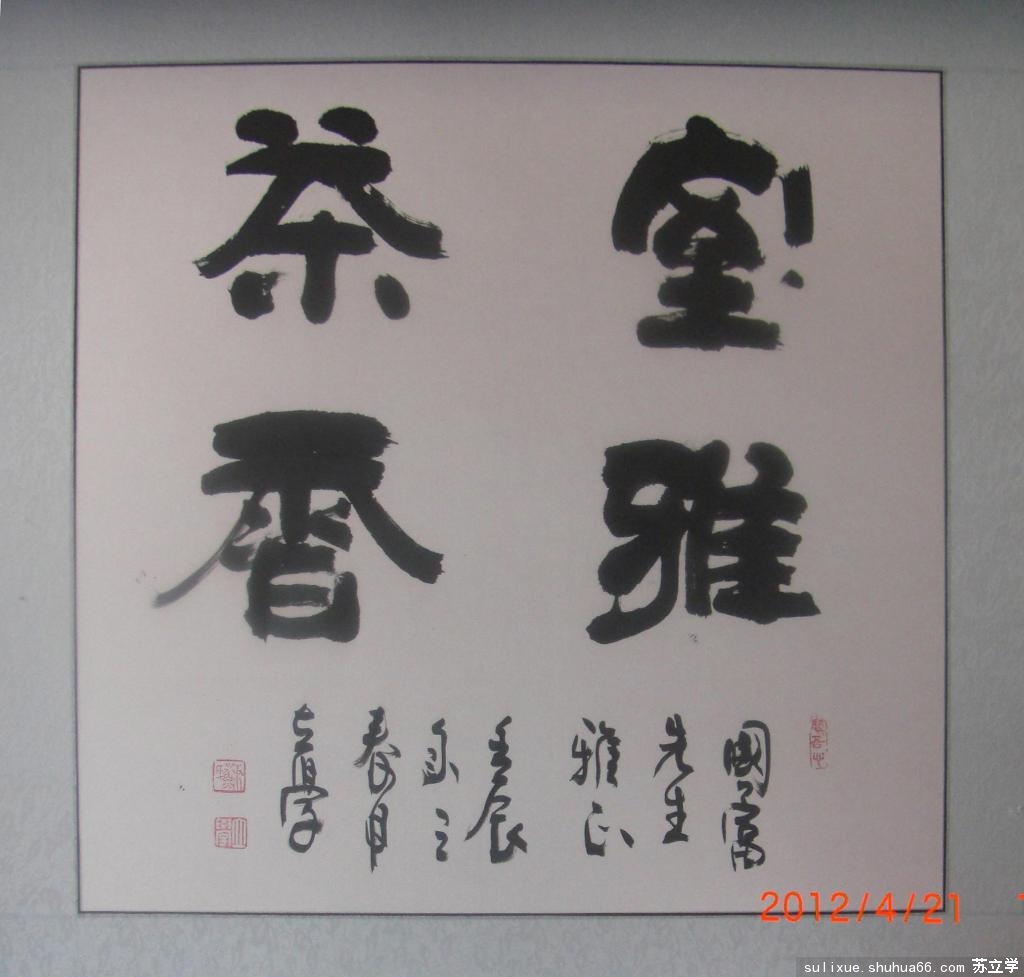 室雅
茶香
國富
先生
雅正
壬辰
春月
立學
2012/4/21
sulixue.shuhua66.com 苏立学